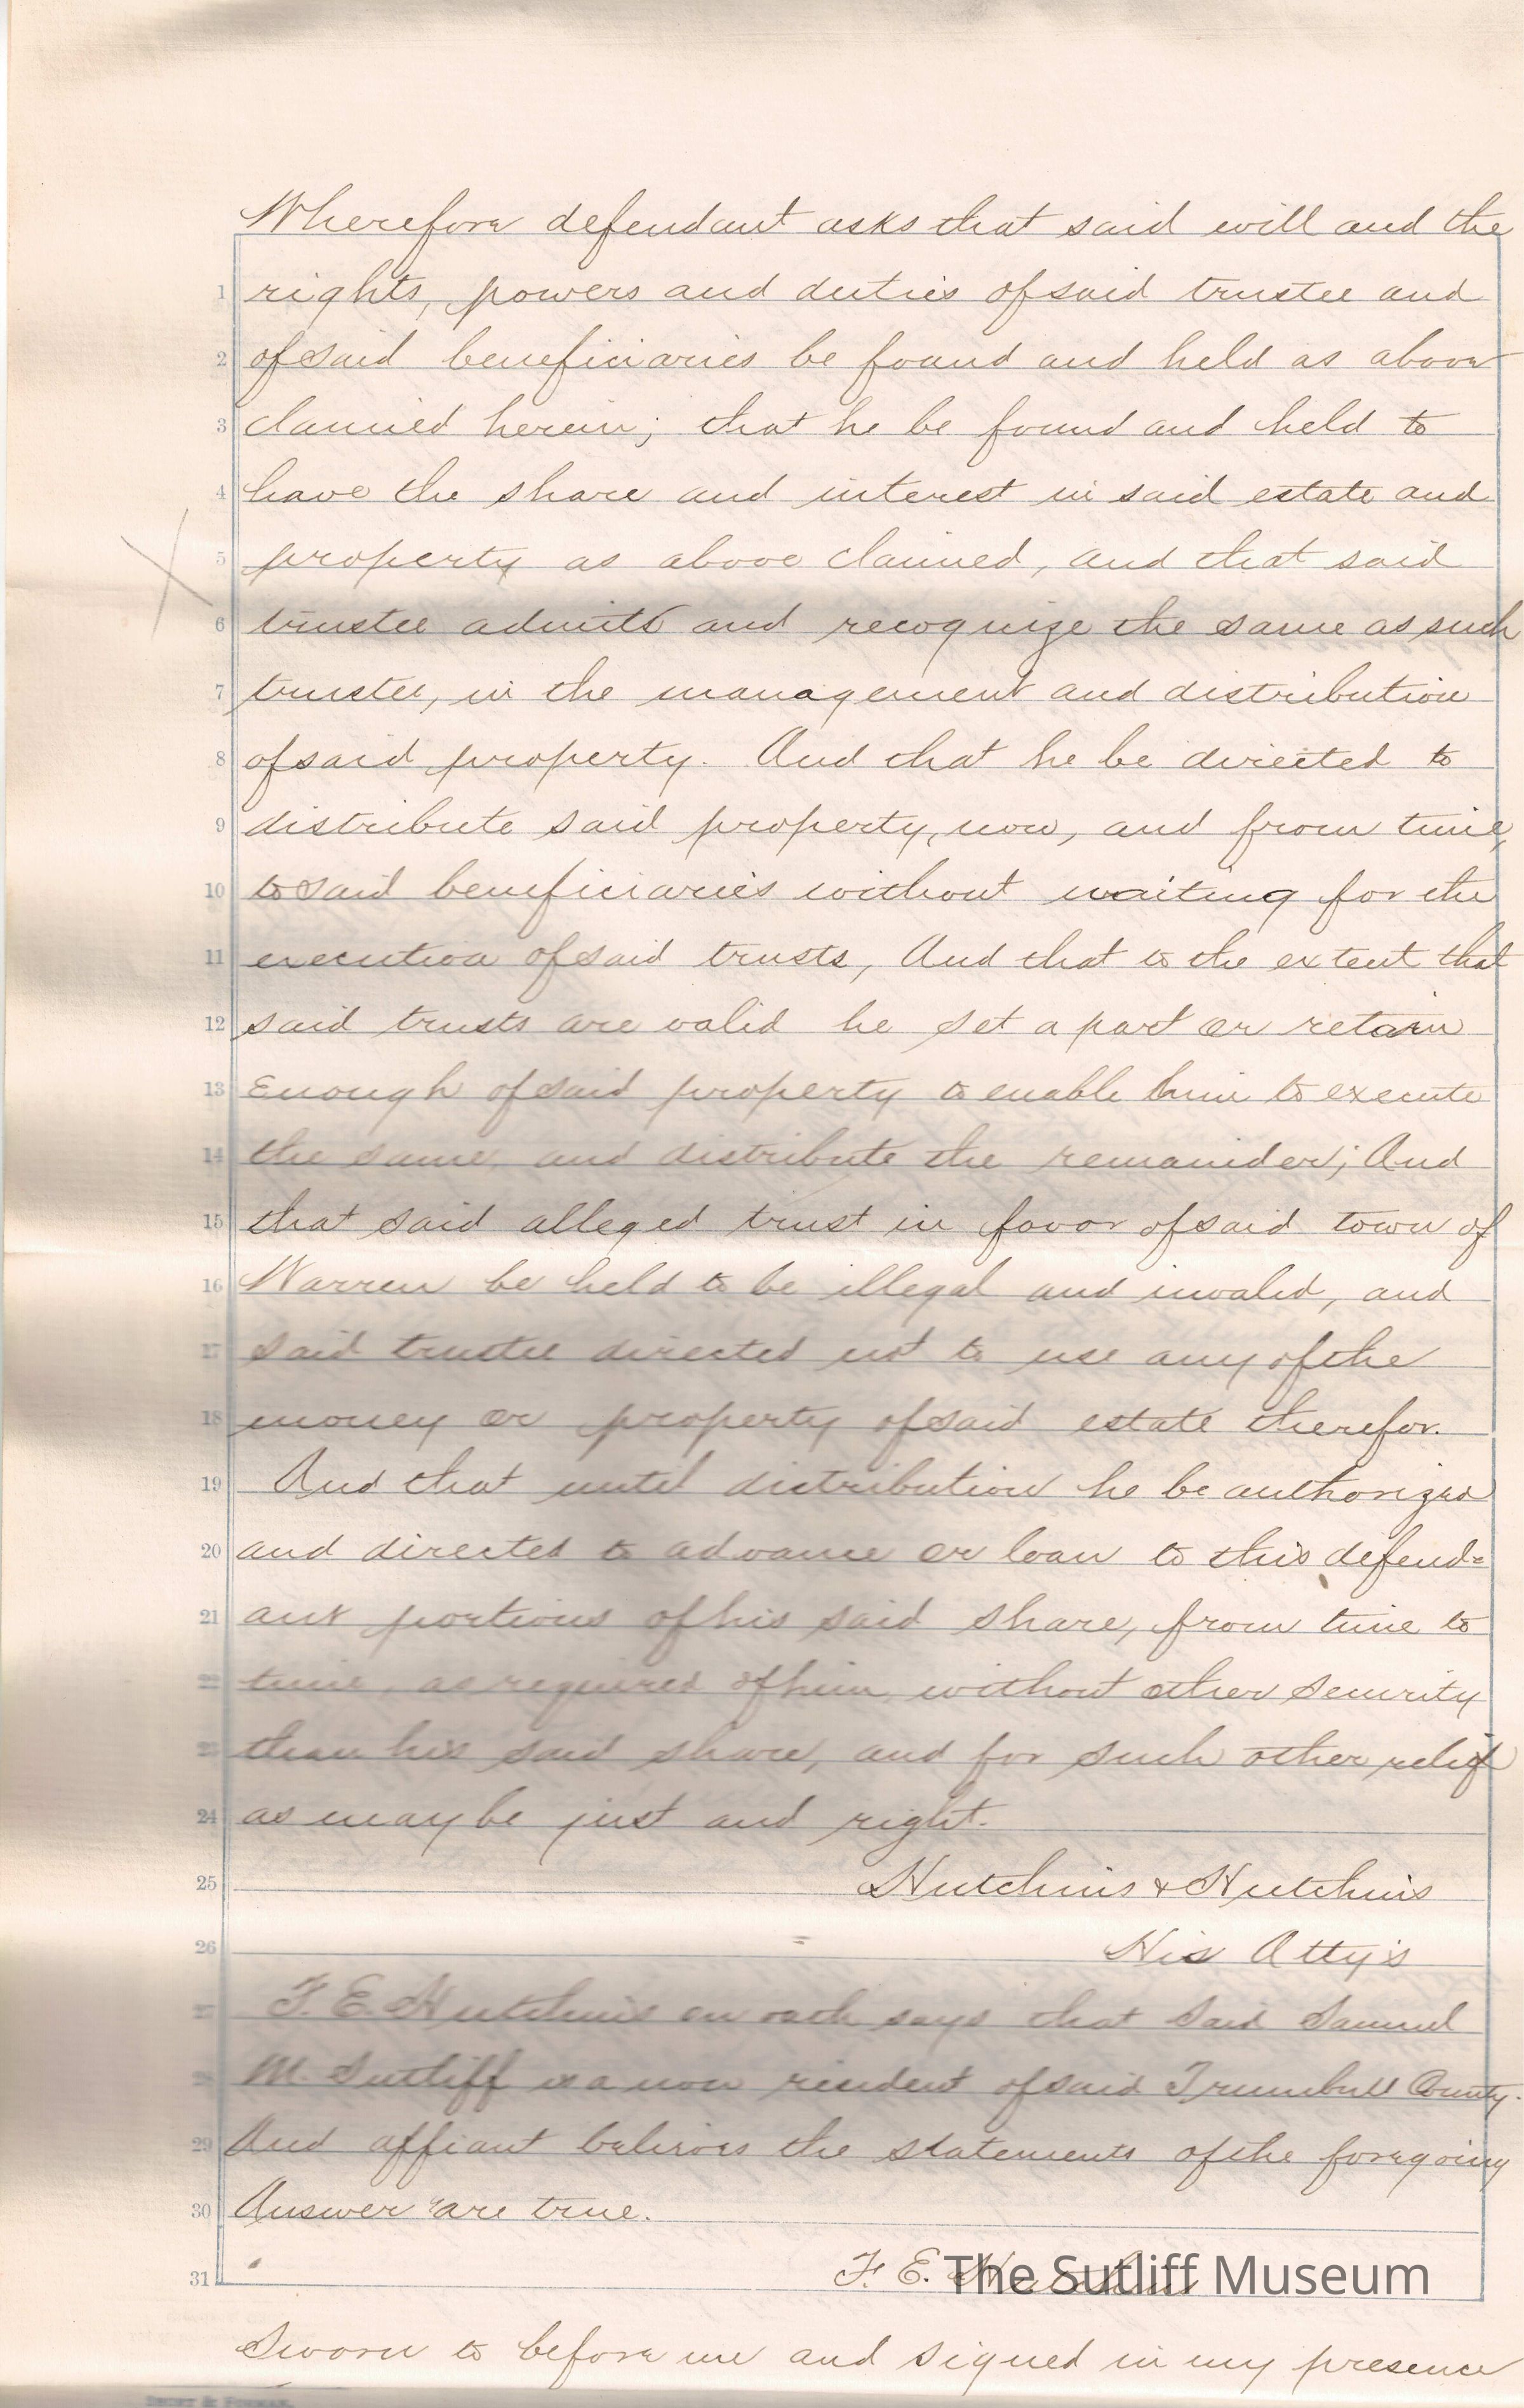 Wherefore defendant asks that said will and the
1 rights, powers and duties of said trustee and
2 of said beneficiaries be found and held as above
3 claimed herein; that he be found and held to
4 have the share and interest in said estate and
5 property as above claimed, and that said
6 trustee admits and recognize the same as such
7 trustee, in the management and distribution
8 of said property. And that he be directed to
9 distribute said property, now, and from time,
10 to said beneficiaries without waiting for the
11 execution of said trusts, And that to the extent that
12 said trusts are valid he set apart or retain
13 Enough of said property to enable him to execute
14 the same, and distribute the remainder; And
15 that said alleged trust in favor of said town of
16 Warren be held to be illegal and invalid, and
17 said trustee directed not to use any of the
18 money or property of said estate therefor.
19 And that until distribution he be authorized
20 and directed to advance or loan to this defend=
21 ant portions of his said share, from time to
22 time, as required of him, without other security
23 than his said share, and for such other relief
24 as may be just and right.
25 Hutchins & Hutchins
26 His Atty's
27 F. E. Hutchins on oath says that said Samuel
28 M. Sutliff is a non resident of said Trumbull County.
29 And affiant believes the statements of the foregoing
30 Answer are true.
31 F. E. Hutchins
The Sutliff Museum
Sworn to before me and signed in my presence
SHORT & FORMAN.